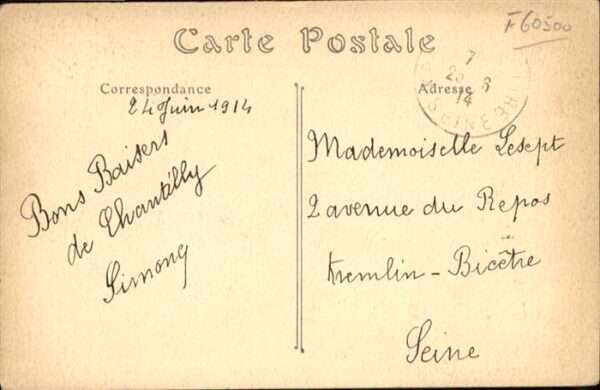 F60500
Carte Postale
Correspondance
24 Juin 1914
Bons Baisers
de Chantilly
Simone
Adresse
7
25 6
14
SEINE
Mademoiselle Lesept
2 avenue du Repos
Kremlin - Bicêtre
Seine